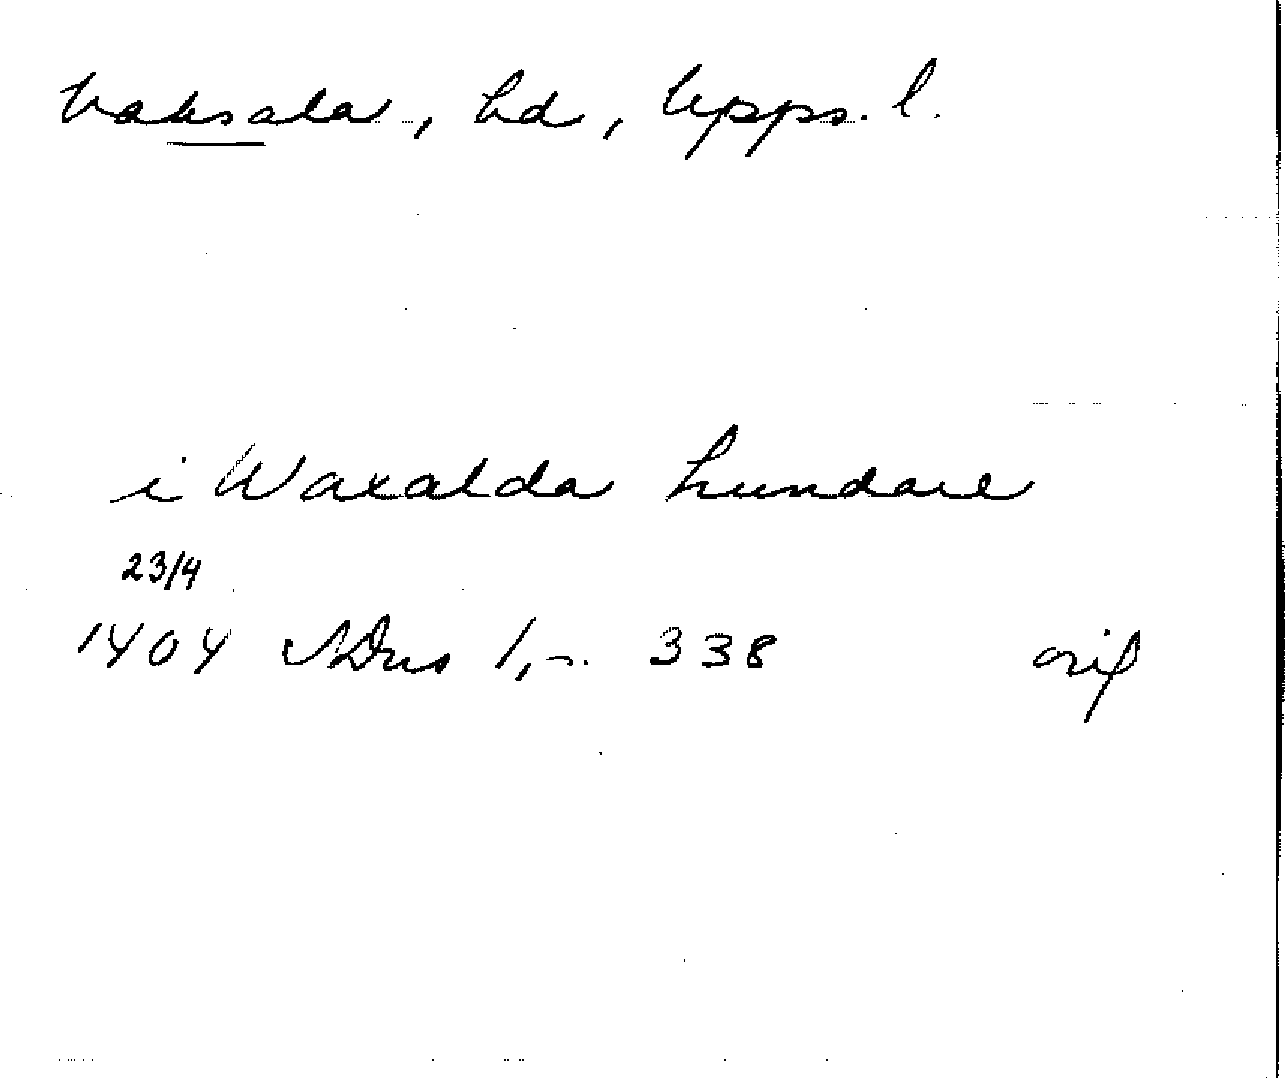 Vaksala, hd, Upps. l.
i Waxalda hundare
23/4
1404 SDns 1, s. 338 orig